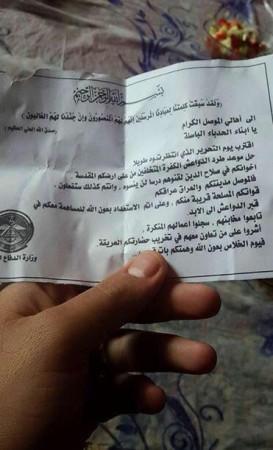 بسم الله الرحمن الرحيم
(ولقد سبقت كلمتنا لعبادنا المرسلين إنهم لهم المنصورون وإن جندنا لهم الغالبون)
صدق الله العلي العظيم
الى اهالي الموصل الكرام
يا ابناء الحدباء الباسلة
اقترب يوم التحرير الذي انتظرتموه طويلا
حل موعد طرد الدواعش الكفرة المتخلفين من على ارضكم المقدسة
اخوانكم في صلاح الدين لقنوهم درسا لن ينسوه , وانتم كذلك ستفعلون .
فالموصل مدينتكم والعراق عراقكم
قواتكم المسلحة قريبة منكم , وعلى اتم الاستعداد بعون الله للمساهمة معكم في
قبر الدواعش الى الابد.
تابعوا مخابئهم . سجلوا اعمالهم المنكرة .
أشروا على من تعاون معهم في تخريب حضارتكم العريقة
فيوم الخلاص بعون الله وهمتكم بات
وزارة الدفاع